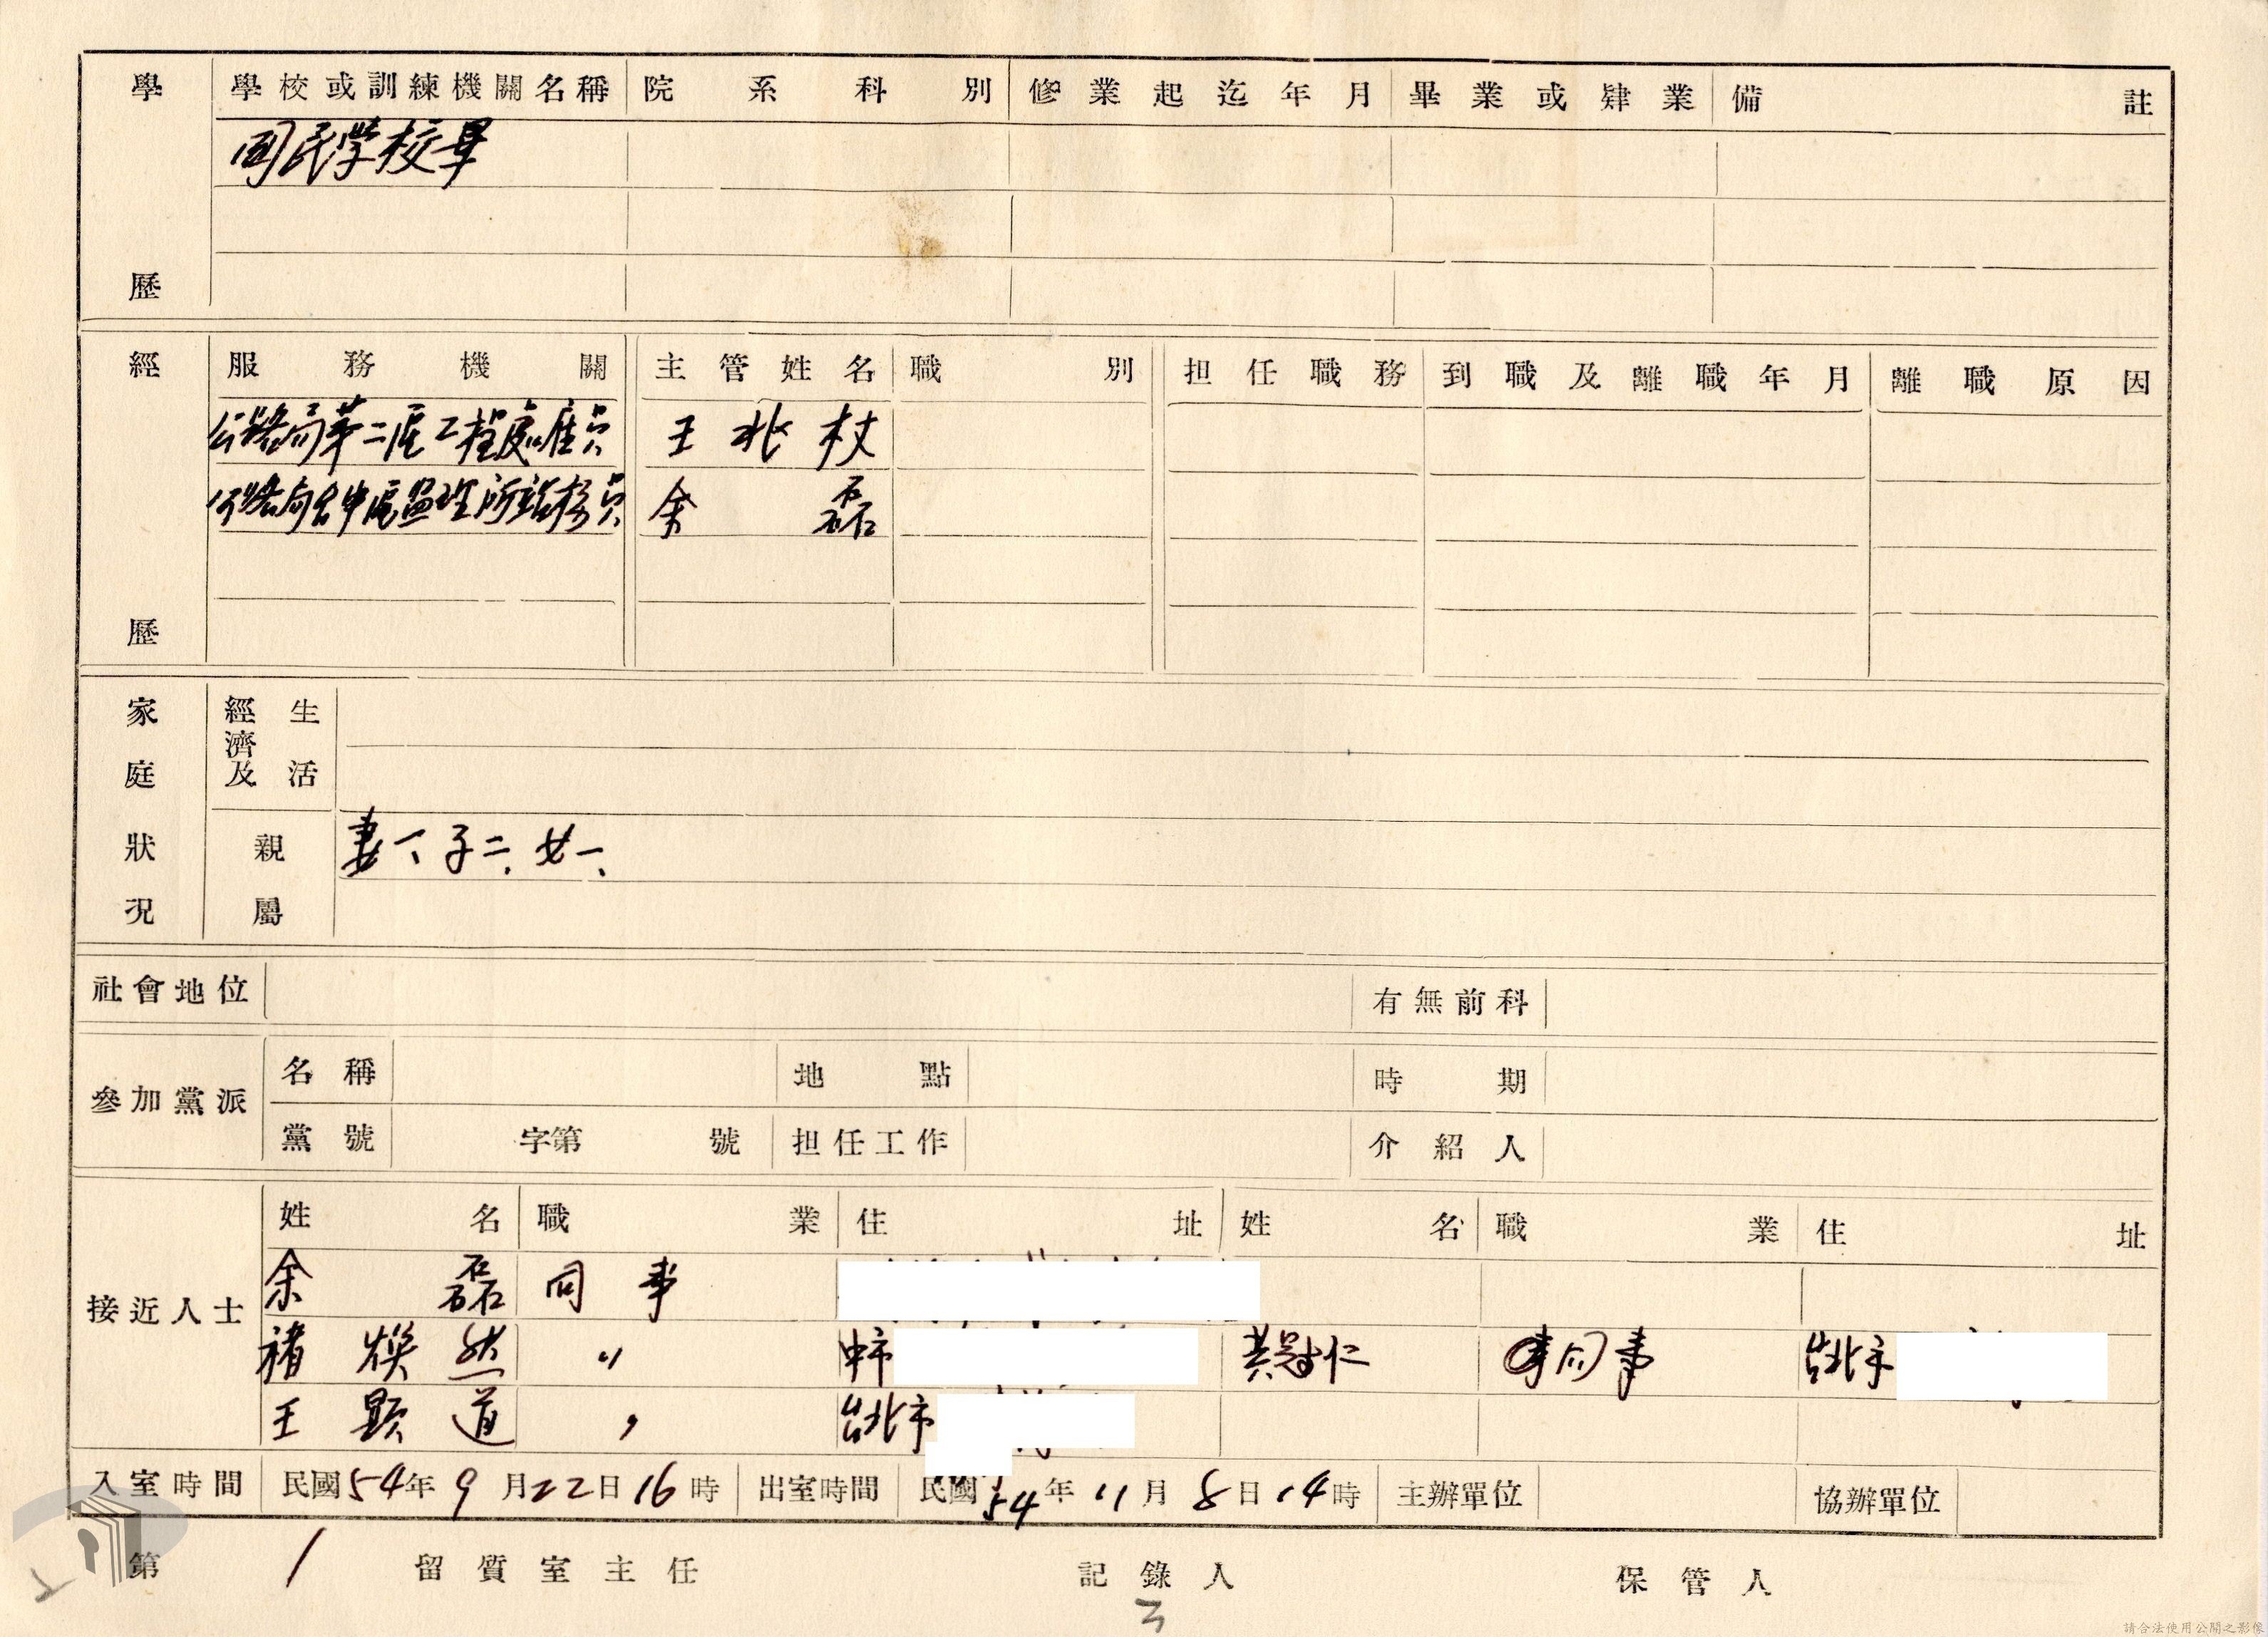 學歷 學校或訓練機關名稱 院系科別 修業起迄年月 畢業或肄業 備註
國民學校畢
經歷 服務機關 主管姓名 職別 担任職務 到職及離職年月 離職原因
公路局第二區工程處雇員 王兆杖
公路局台中區監理所站務員 余磊
家庭狀況 經濟及生活
親屬 妻一、子二、女一、
社會地位 有無前科
參加黨派 名稱 地點 時期
黨號 字第 號 担任工作 介紹人
接近人士 姓名 職業 住址 姓名 職業 住址
余磊 同事
褚煥然 〃 中市 黃冠仁 同事 台北市
王顯道 〃 台北市
入室時間 民國54年9月22日16時 出室時間 民國54年11月8日14時 主辦單位 協辦單位
第 1 留質室主任 記錄人 保管人
3
請合法使用公開之影像